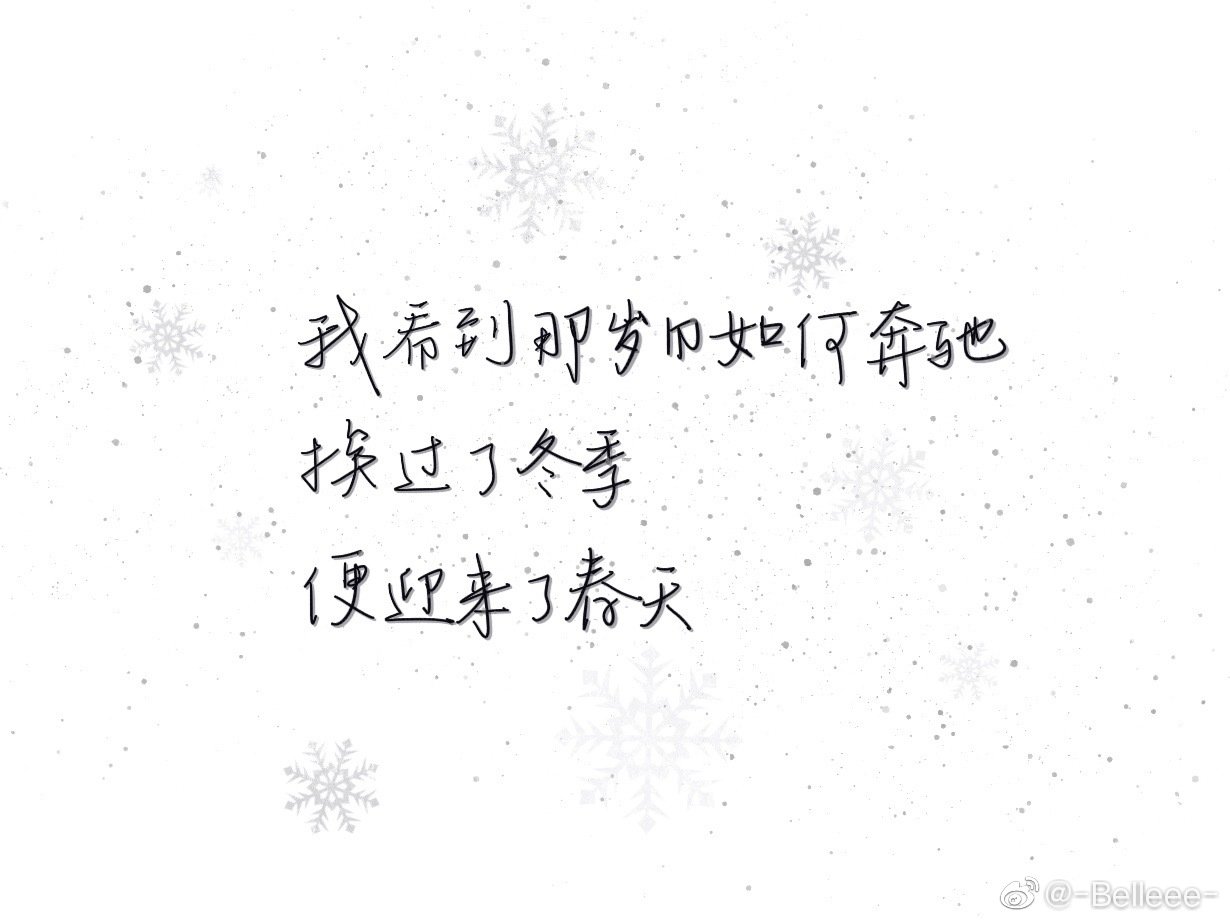 我看到那岁月如何奔驰
挨过了冬季
便迎来了春天
@-Belleee-